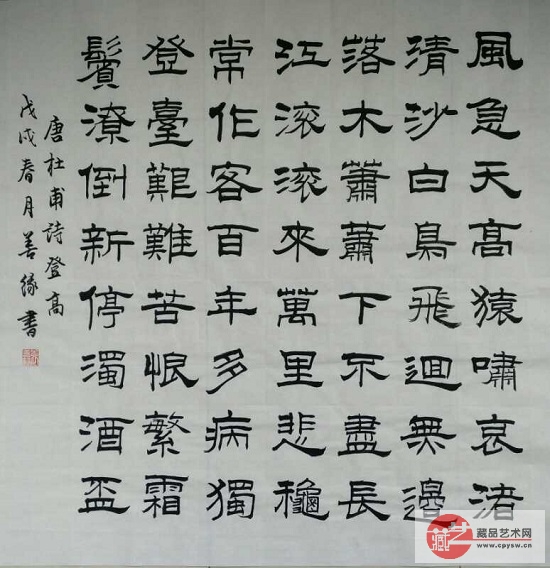 風急天高猿嘯哀渚
清沙白鳥飛迴無邊
落木蕭蕭下不盡長
江滾滾來萬里悲穐
常作客百年多病獨
登臺艱難苦恨繁霜
鬢潦倒新停濁酒盃
唐杜甫詩登高
戊戌春月善緣書
藏品艺术网
www.cpysw.cn